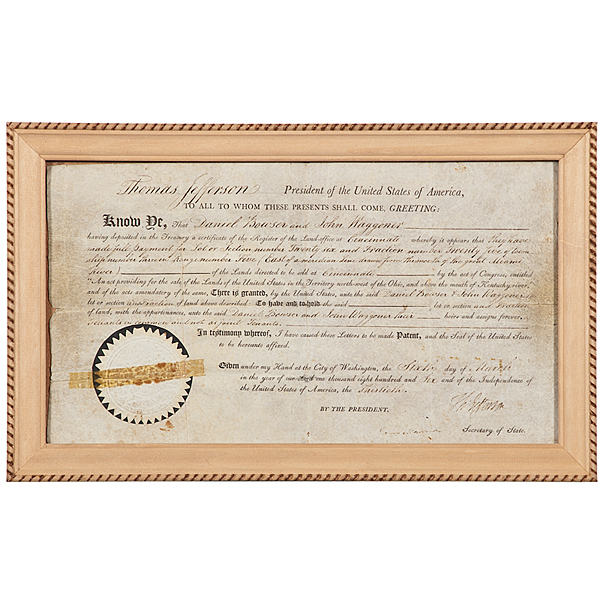 Thomas Jefferson President of the United States of America,
TO ALL TO WHOM THESE PRESENTS SHALL COME, GREETING:
Know Ye, That Daniel Bowser and John Waggoner
having deposited in the Treasury a certificate of the Register of the Land-office at Cincinnati whereby it appears that they have
made full payment for Lot or Section number Twenty six and Fraction number Twenty five of Town
ship number Range number Five East of a meridian line drawn from the mouth of the great Miami
River of the Lands directed to be sold at Cincinnati by the act of Congress, entitled
"An act providing for the sale of the Lands of the United States in the Territory north-west of the Ohio, and above the mouth of Kentucky river,"
and of the acts amendatory of the same, There is granted, by the United States, unto the said Daniel Bowser & John Waggoner the
lot or section and Fraction of land above described: To have and to hold the said lot or section and Fraction
of land, with the appurtenances, unto the said Daniel Bowser and John Waggoner their heirs and assigns forever,
tenants in common and not as joint tenants.
In testimony whereof, I have caused these Letters to be made Patent, and the Seal of the United States
to be hereunto affixed.
Given under my Hand at the City of Washington, the Sixth day of March
in the year of our Lord one thousand eight hundred and Six and of the Independence of
the United States of America, the Thirtieth
Th Jefferson
BY THE PRESIDENT,
James Madison Secretary of State.